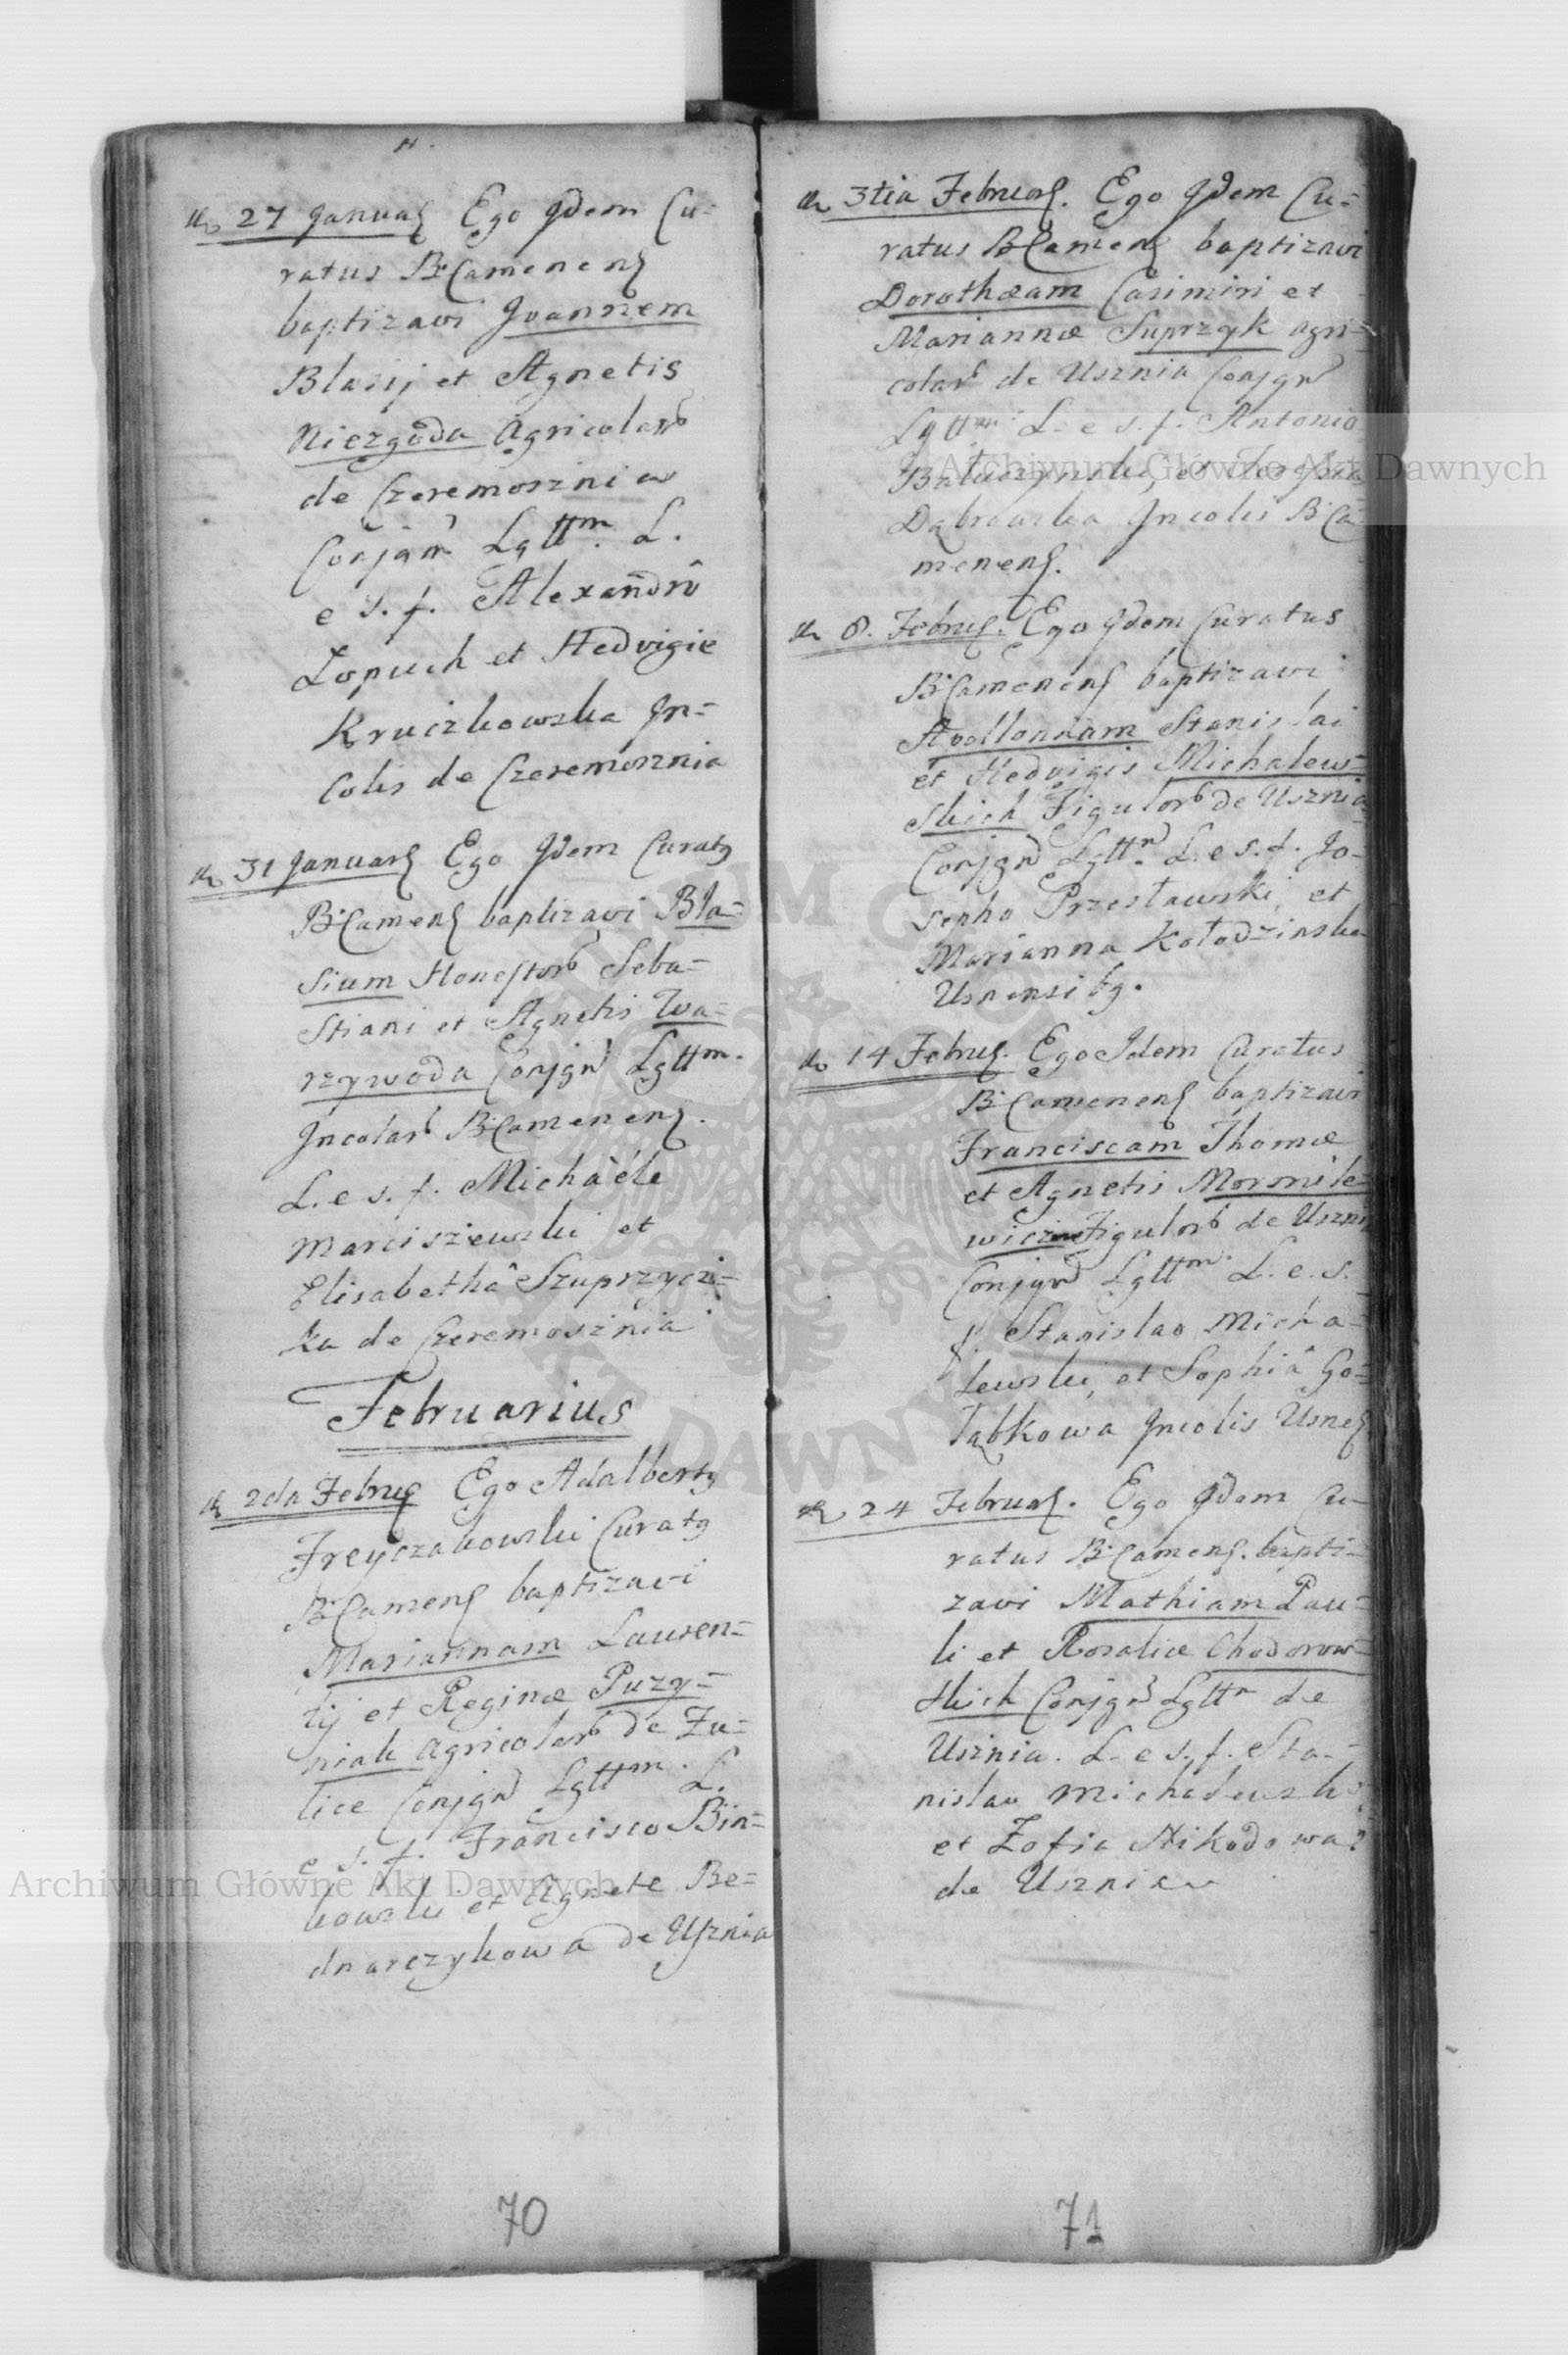 27 Januar Ego Idem Cu=
ratus B:Camenens
baptizavi Joannem
Blasij et Agnetis
Niezgoda Agricolar
de Czeremosznia
Conjgm Lgttm. L.
e s. f. Alexandro
Łopuch et Hedvigie
Kruczkowska In=
colis de Czeremosznia
31 Januar Ego Idem Curatg
B:Camens baptizavi Bla=
sium Honestor Seba=
stiani et Agnetis Wa=
rzywoda Conjgm Lgttm.
Incolar B:Camenens.
L. e s. f. Michàéle
Marciszewski et
Elisabethâ Szuprzyczi=
ka de Czeremosznia
Februarius
2da Febru Ego Adalbertg
Freyczakowski Curatg
B:Camens baptizavi
Mariannam Lauren=
tij et Reginæ Puzy=
niak Agricolar de Żu=
lice Conjgm Lgttm. L.
e s. f. Francisco Bin=
kowski et Agnete Be=
dnarczykowa de Usznia
70
3tia Februar. Ego Idem Cu=
ratus B:Camens baptizavi
Dorothæam Casimiri et
Mariannæ Suprzyk Agri=
colar de Usznia Conjgm
Lgttm L. e s. f. Antonio
Dąbrowska Incolis B:Ca
menens.
8. Febru. Ego Idem Curatus
B:Camenens baptizavi
Apolloniam Stanislai
et Hedvigis Michalew=
skich Figulor de Usznia
Conjgm Lgttm. L. e s. f. Jo=
sepho Przesławski, et
Marianna Kołodzinska
Usnensibg.
14 Febru. Ego Idem Curatus
B:Camenens baptizavi
Franciscam Thomæ
et Agnetis Mormile=
wicz Figulor de Uszni
Conjgm Lgttm L. e. s.
f. Stanislao Micha=
lewski, et Sophiâ Go=
łąbkowa Incolis Usnes
24 Februar. Ego Idem Cu=
ratus B:Camens. bapti=
zavi Mathiam Pau=
li et Rosaliæ Chodorow=
skich Conjgm Lgttm de
Usznia. L. e s. f. Sta=
nislao Michalewski
et Zofia Nikodowa
de Usznia
71
Archiwum Główne Akt Dawnych
Archiwum Główne Akt Dawnych